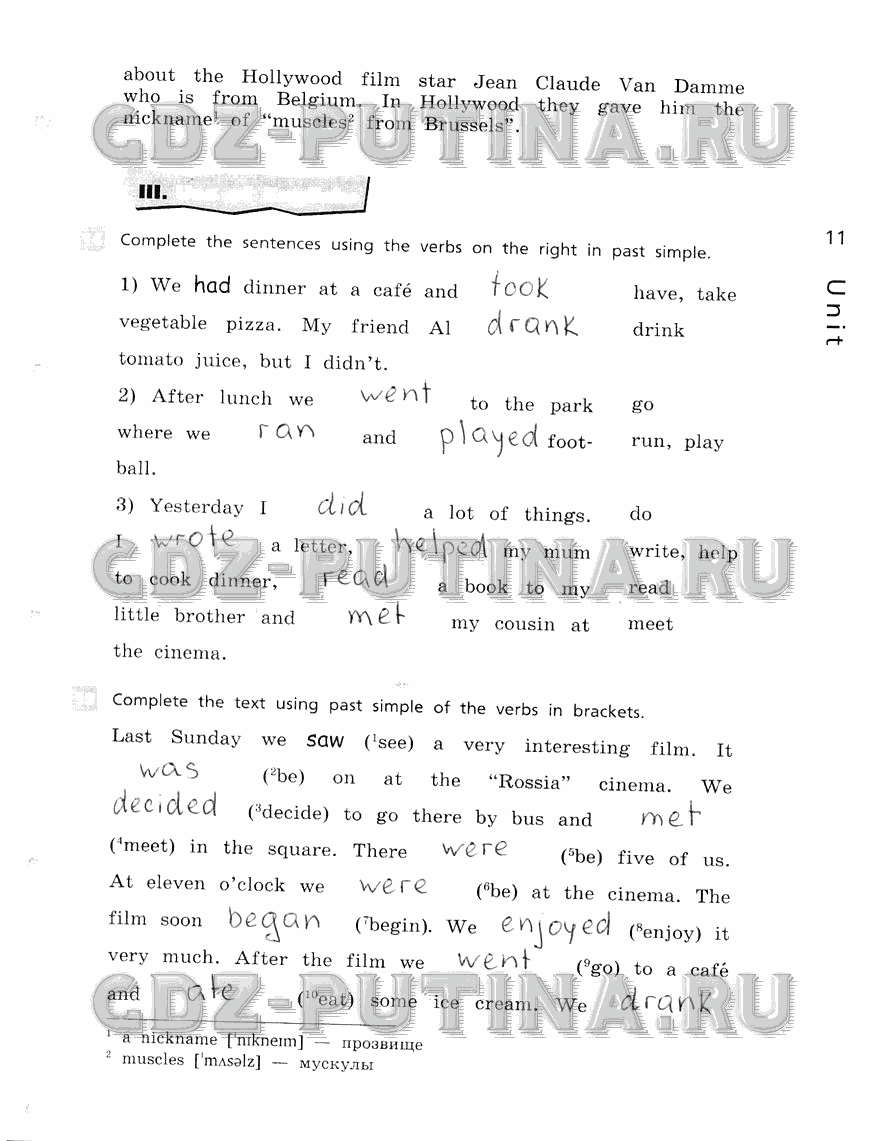 about the Hollywood film star Jean Claude Van Damme
who is from Belgium. In Hollywood they gave him the
nickname¹ of “muscles² from Brussels”.
GDZ-PUTINA.RU
III.
Complete the sentences using the verbs on the right in past simple.
11
Unit
1) We had dinner at a café and took have, take
vegetable pizza. My friend Al drank drink
tomato juice, but I didn’t.
2) After lunch we went to the park go
where we ran and played foot- run, play
ball.
3) Yesterday I did a lot of things. do
I wrote a letter, helped my mum write, help
GDZ-PUTINA.RU
to cook dinner, read a book to my read
little brother and met my cousin at meet
the cinema.
Complete the text using past simple of the verbs in brackets.
Last Sunday we saw (¹see) a very interesting film. It
was (²be) on at the “Rossia” cinema. We
decided (³decide) to go there by bus and met
(⁴meet) in the square. There were (⁵be) five of us.
At eleven o’clock we were (⁶be) at the cinema. The
film soon began (⁷begin). We enjoyed (⁸enjoy) it
very much. After the film we went (⁹go) to a café
and ate (¹⁰eat) some ice cream. We drank
GDZ-PUTINA.RU
¹ a nickname [ˈnɪkneɪm] — прозвище
² muscles [ˈmʌsəlz] — мускулы